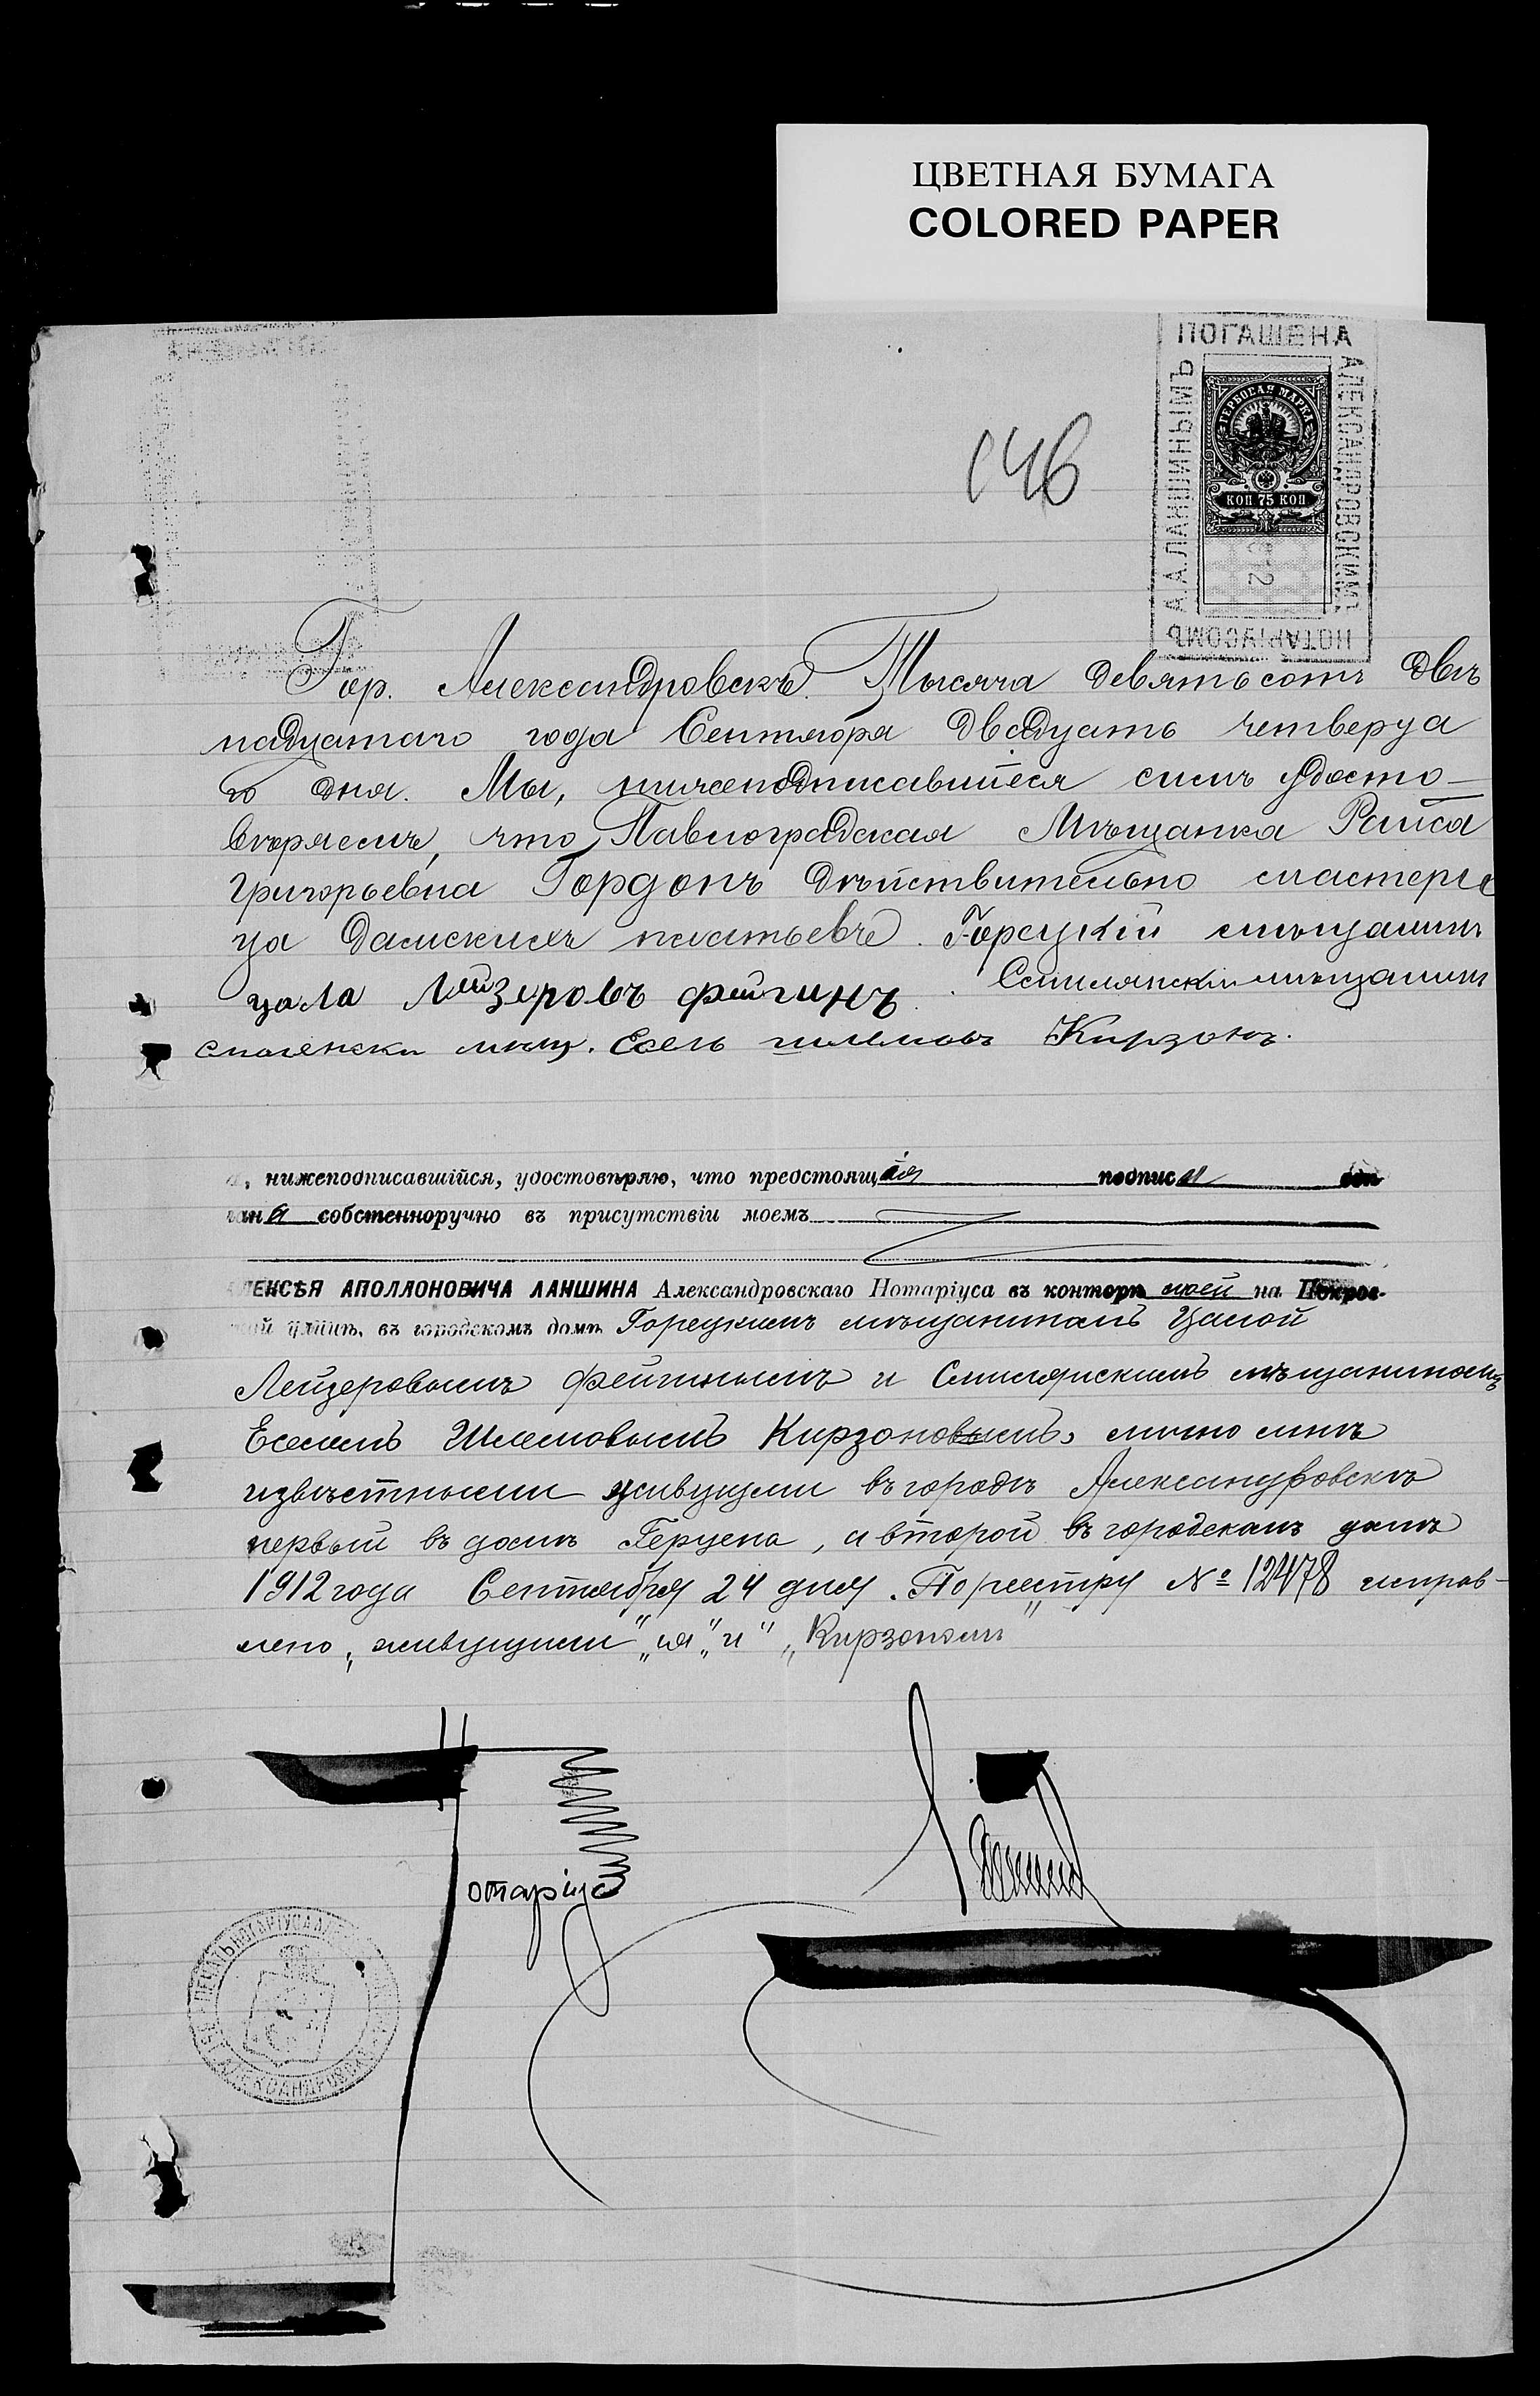 ЦВЕТНАЯ БУМАГА
COLORED PAPER
ПОГАШЕНА
АЛЕКСАНДРОВСКИМЪ
НОТАРІУСОМЪ
А. А. ЛАНШИНЫМЪ
ГЕРБОВАЯ МАРКА
КОП 75 КОП
146
Гор. Александровскъ. Тысяча девятьсотъ двѣ
надцатаго года Сентября двадцать четверта
го дня. Мы, нижеподписавшіеся симъ удосто-
вѣряемъ, что Павлоградская Мѣщанка Раиса
Григорьевна Гордонъ дѣйствительно мастери
ца дамскихъ платьевъ. Горецкій мѣщанинъ
цала Лейзеровъ фейгинъ. Смилянскій мѣщанинъ
мѣщ. Есель шлемовъ Кирзонъ.
, нижеподписавшійся, удостовѣряю, что предстоящія подписи
ана собственноручно въ присутствіи моемъ
ЛЕКСѢЯ АПОЛЛОНОВИЧА ЛАНШИНА Александровскаго Нотаріуса въ конторѣ моей на Покров-
кой улицѣ, въ городскомъ домѣ Горецкимъ мѣщаниномъ Цалой
Лейзеровымъ Фейгинымъ и Смилянскимъ мѣщаниномъ
Еселемъ Шлемовымъ Кирзоновымъ, лично мнѣ
извѣстными живущими въ городѣ Александровскѣ
первый въ домѣ Герцена, а второй въ городскомъ домѣ
1912 года Сентября 24 дня. По реестру № 12478 исправ-
лено „живущими" „ія" „и" „Кирзономъ"
Нотаріусъ
Ланшинъ